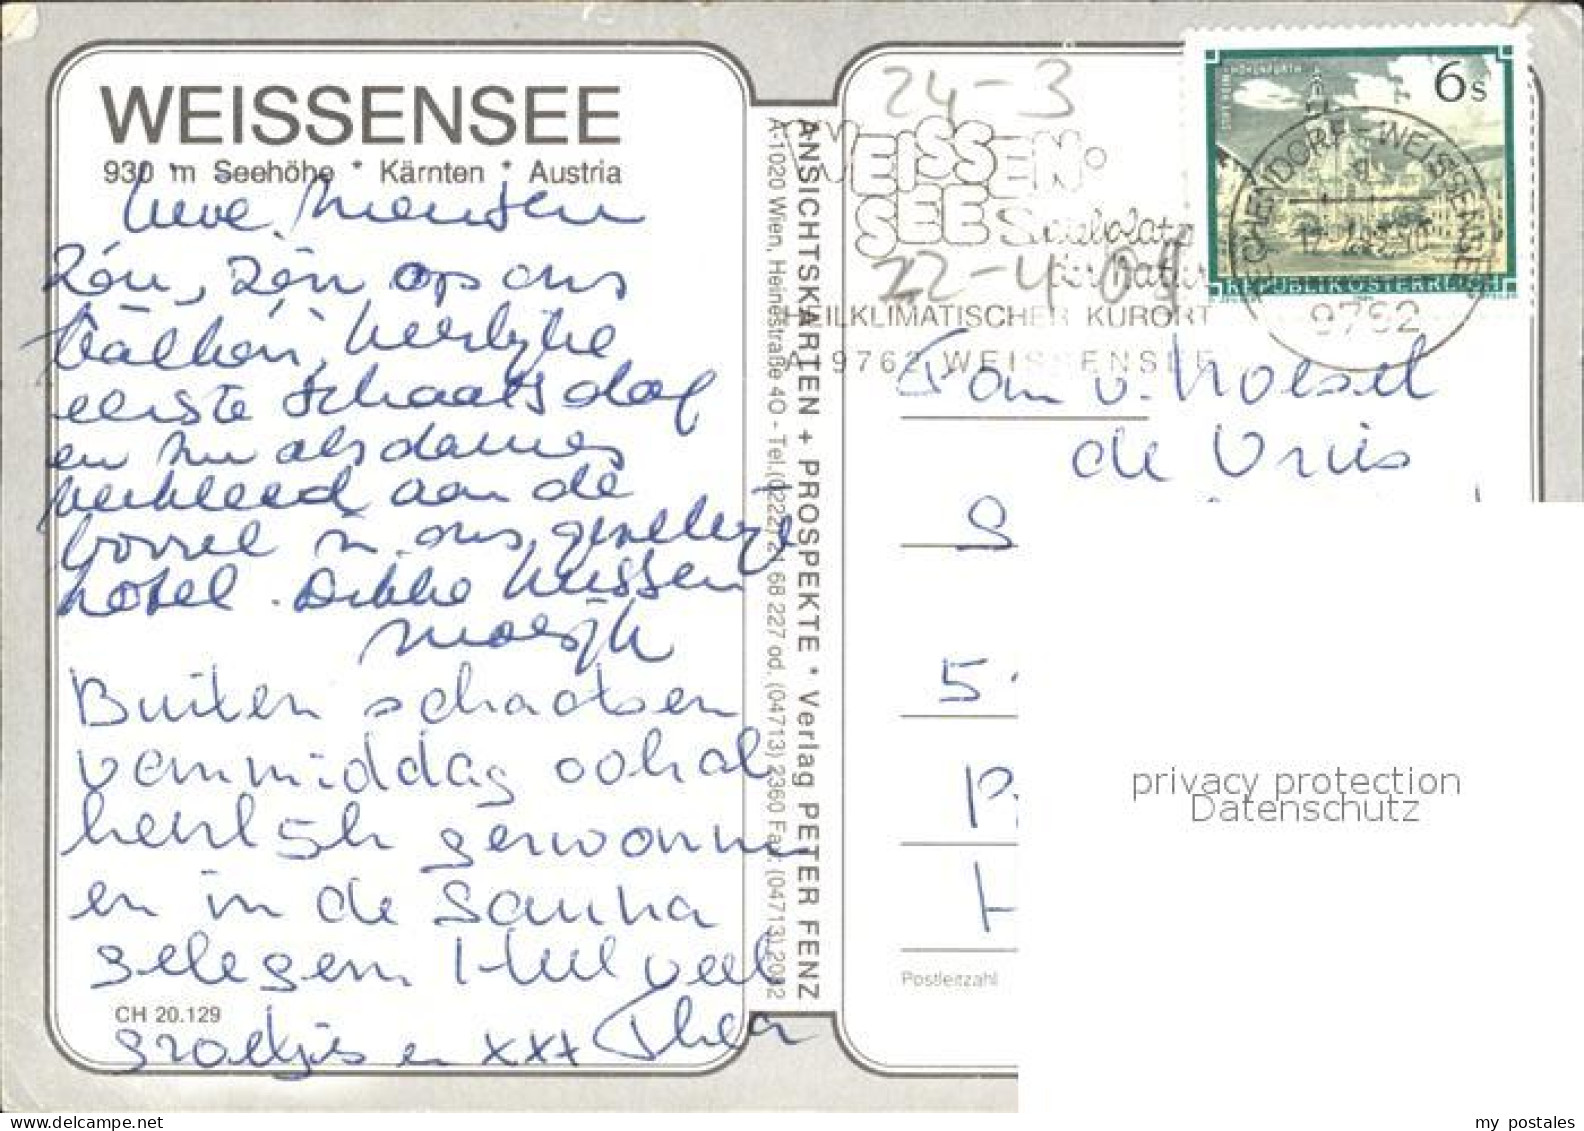 WEISSENSEE
930 m Seehöhe * Kärnten * Austria
Lieve mensen
Zon, zon op ons
balkon, heerlijke
eerste schaatsdag
en nu als dames
verkleed aan de
borrel in ons gezellige
hotel. Dikke kussen
Buiten schaatsen
vanmiddag ook al
heerlijk gewonnen
en in de sauna
gelegen. Heel veel
groetjes en xxx Thea
CH 20.129
ANSICHTSKARTEN + PROSPEKTE * Verlag PETER FENZ
A-1020 Wien, Heinestraße 40 - Tel.(0222) 21 68 227 od. (04713) 2360 Fax: (04713) 2082
24-3
WEISSEN
SEE
22-4
HEILKLIMATISCHER KURORT
A 9762 WEISSENSEE
6s
REPUBLIK ÖSTERREICH
TECHENDORF-WEISSENSEE
9762
Fam v. Hoesel
de Vries
S
5
P
H
Postleitzahl
privacy protection
Datenschutz
my postales